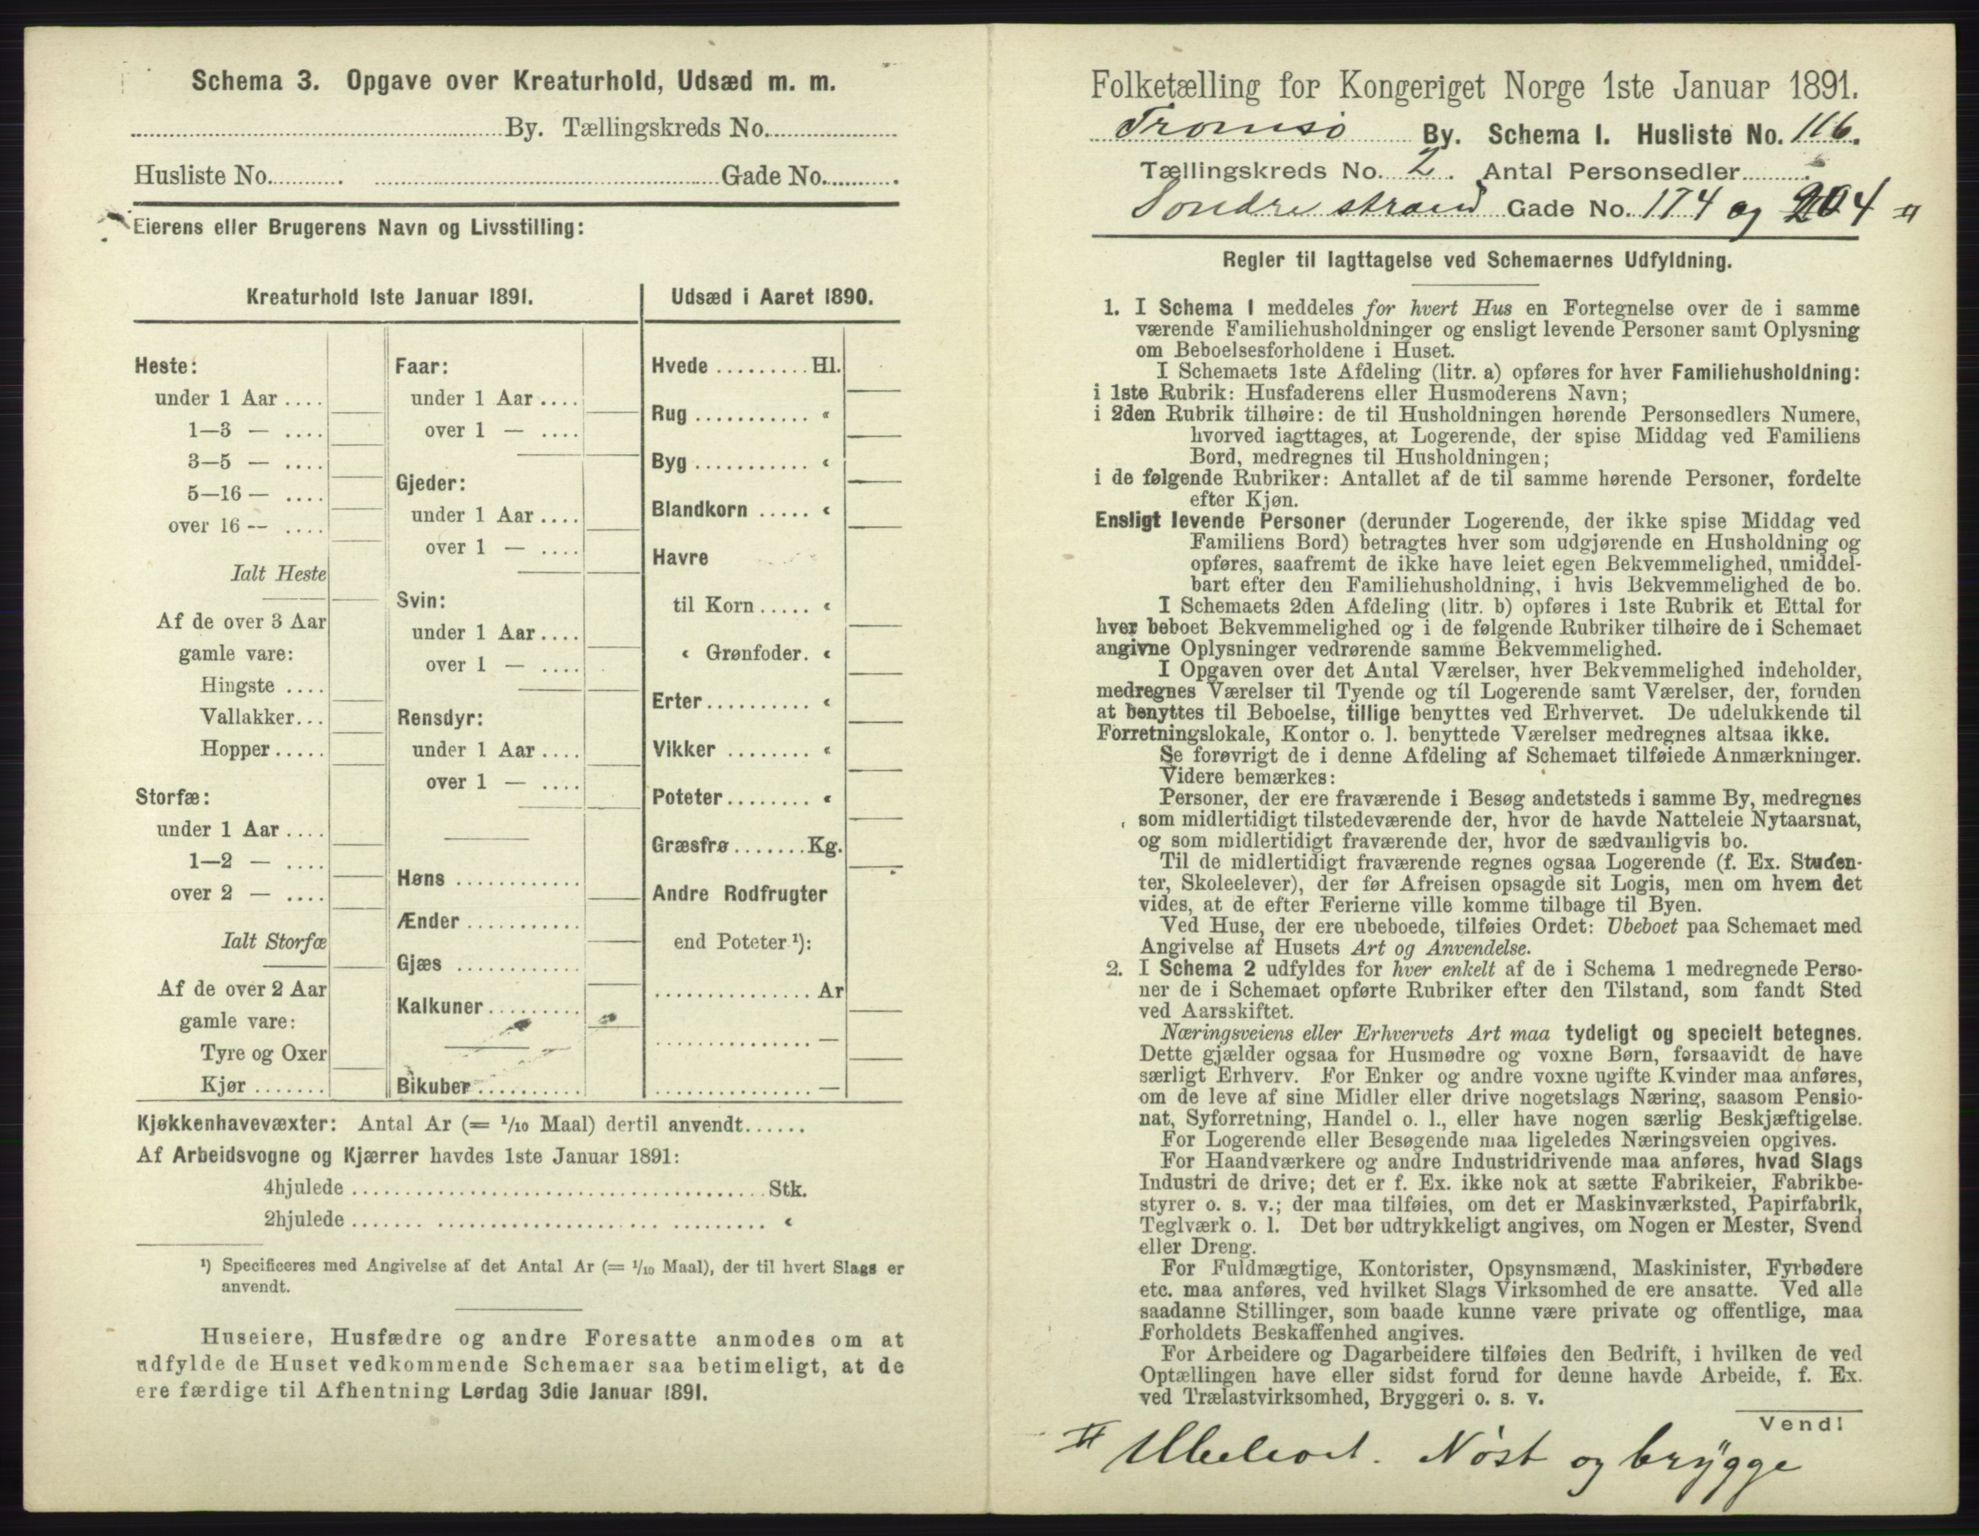 Schema 3. Opgave over Kreaturhold, Udsæd m. m.
By. Tællingskreds No.
Husliste No. Gade No.
Eierens eller Brugerens Navn og Livsstilling:
Kreaturhold 1ste Januar 1891.
Heste:
under 1 Aar ....
1—3 — ....
3—5 — ....
5—16 — ....
over 16 -- ....
Ialt Heste
Af de over 3 Aar
gamle vare:
Hingste ....
Vallakker...
Hopper.....
Storfæ:
under 1 Aar ....
1—2 — ....
over 2 — ....
Ialt Storfæ
Af de over 2 Aar
gamle vare:
Tyre og Oxer
Kjør .......
Faar:
under 1 Aar ....
over 1 — ....
Gjeder:
under 1 Aar ....
over 1 — ....
Svin:
under 1 Aar ....
over 1 — ....
Rensdyr:
under 1 Aar ....
over 1 — ....
Høns ............
Ænder ...........
Gjæs ............
Kalkuner .........
Bikuber ..........
Udsæd i Aaret 1890.
Hvede ......... Hl.
Rug ........... «
Byg ........... «
Blandkorn ..... «
Havre
til Korn ..... «
« Grønfoder. «
Erter .......... «
Vikker ........ «
Poteter ........ «
Græsfrø ....... Kg.
Andre Rodfrugter
end Poteter ¹):
............... Ar
............... —
............... —
Kjøkkenhavevæxter: Antal Ar (= 1/10 Maal) dertil anvendt......
Af Arbeidsvogne og Kjærrer havdes 1ste Januar 1891:
4hjulede ....................................... Stk.
2hjulede ....................................... «
¹) Specificeres med Angivelse af det Antal Ar (= 1/10 Maal), der til hvert Slags er
anvendt.
Huseiere, Husfædre og andre Foresatte anmodes om at
udfylde de Huset vedkommende Schemaer saa betimeligt, at de
ere færdige til Afhentning Lørdag 3die Januar 1891.
Folketælling for Kongeriget Norge 1ste Januar 1891.
Tromsø By. Schema I. Husliste No. 116.
Tællingskreds No. 2. Antal Personsedler
Søndre strand Gade No. 174 og 204 #
Regler til Iagttagelse ved Schemaernes Udfyldning.
1. I Schema 1 meddeles for hvert Hus en Fortegnelse over de i samme
værende Familiehusholdninger og ensligt levende Personer samt Oplysning
om Beboelsesforholdene i Huset.
I Schemaets 1ste Afdeling (litr. a) opføres for hver Familiehusholdning:
i 1ste Rubrik: Husfaderens eller Husmoderens Navn;
i 2den Rubrik tilhøire: de til Husholdningen hørende Personsedlers Numere,
hvorved iagttages, at Logerende, der spise Middag ved Familiens
Bord, medregnes til Husholdningen;
i de følgende Rubriker: Antallet af de til samme hørende Personer, fordelte
efter Kjøn.
Ensligt levende Personer (derunder Logerende, der ikke spise Middag ved
Familiens Bord) betragtes hver som udgjørende en Husholdning og
opføres, saafremt de ikke have leiet egen Bekvemmelighed, umiddel-
bart efter den Familiehusholdning, i hvis Bekvemmelighed de bo.
I Schemaets 2den Afdeling (litr. b) opføres i 1ste Rubrik et Ettal for
hver beboet Bekvemmelighed og i de følgende Rubriker tilhøire de i Schemaet
angivne Oplysninger vedrørende samme Bekvemmelighed.
I Opgaven over det Antal Værelser, hver Bekvemmelighed indeholder,
medregnes Værelser til Tyende og til Logerende samt Værelser, der, foruden
at benyttes til Beboelse, tillige benyttes ved Erhvervet. De udelukkende til
Forretningslokale, Kontor o. l. benyttede Værelser medregnes altsaa ikke.
Se forøvrigt de i denne Afdeling af Schemaet tilføiede Anmærkninger.
Videre bemærkes:
Personer, der ere fraværende i Besøg andetsteds i samme By, medregnes
som midlertidigt tilstedeværende der, hvor de havde Natteleie Nytaarsnat,
og som midlertidigt fraværende der, hvor de sædvanligvis bo.
Til de midlertidigt fraværende regnes ogsaa Logerende (f. Ex. Studen-
ter, Skoleelever), der før Afreisen opsagde sit Logis, men om hvem det
vides, at de efter Ferierne ville komme tilbage til Byen.
Ved Huse, der ere ubeboede, tilføies Ordet: Ubeboet paa Schemaet med
Angivelse af Husets Art og Anvendelse.
2. I Schema 2 udfyldes for hver enkelt af de i Schema 1 medregnede Perso-
ner de i Schemaet opførte Rubriker efter den Tilstand, som fandt Sted
ved Aarsskiftet.
Næringsveiens eller Erhvervets Art maa tydeligt og specielt betegnes.
Dette gjælder ogsaa for Husmødre og voxne Børn, forsaavidt de have
særligt Erhverv. For Enker og andre voxne ugifte Kvinder maa anføres,
om de leve af sine Midler eller drive nogetslags Næring, saasom Pensio-
nat, Syforretning, Handel o. l., eller have nogen særlig Beskjæftigelse.
For Logerende eller Besøgende maa ligeledes Næringsveien opgives.
For Haandværkere og andre Industridrivende maa anføres, hvad Slags
Industri de drive; det er f. Ex. ikke nok at sætte Fabrikeier, Fabrikbe-
styrer o. s. v.; der maa tilføies, om det er Maskinværksted, Papirfabrik,
Teglværk o. l. Det bør udtrykkeligt angives, om Nogen er Mester, Svend
eller Dreng.
For Fuldmægtige, Kontorister, Opsynsmænd, Maskinister, Fyrbødere
etc. maa anføres, ved hvilket Slags Virksomhed de ere ansatte. Ved alle
saadanne Stillinger, som baade kunne være private og offentlige, maa
Forholdets Beskaffenhed angives.
For Arbeidere og Dagarbeidere tilføies den Bedrift, i hvilken de ved
Optællingen have eller sidst forud for denne havde Arbeide, f. Ex.
ved Trælastvirksomhed, Bryggeri o. s. v.
Vend!
# Ubeboet. Nøst og brygge